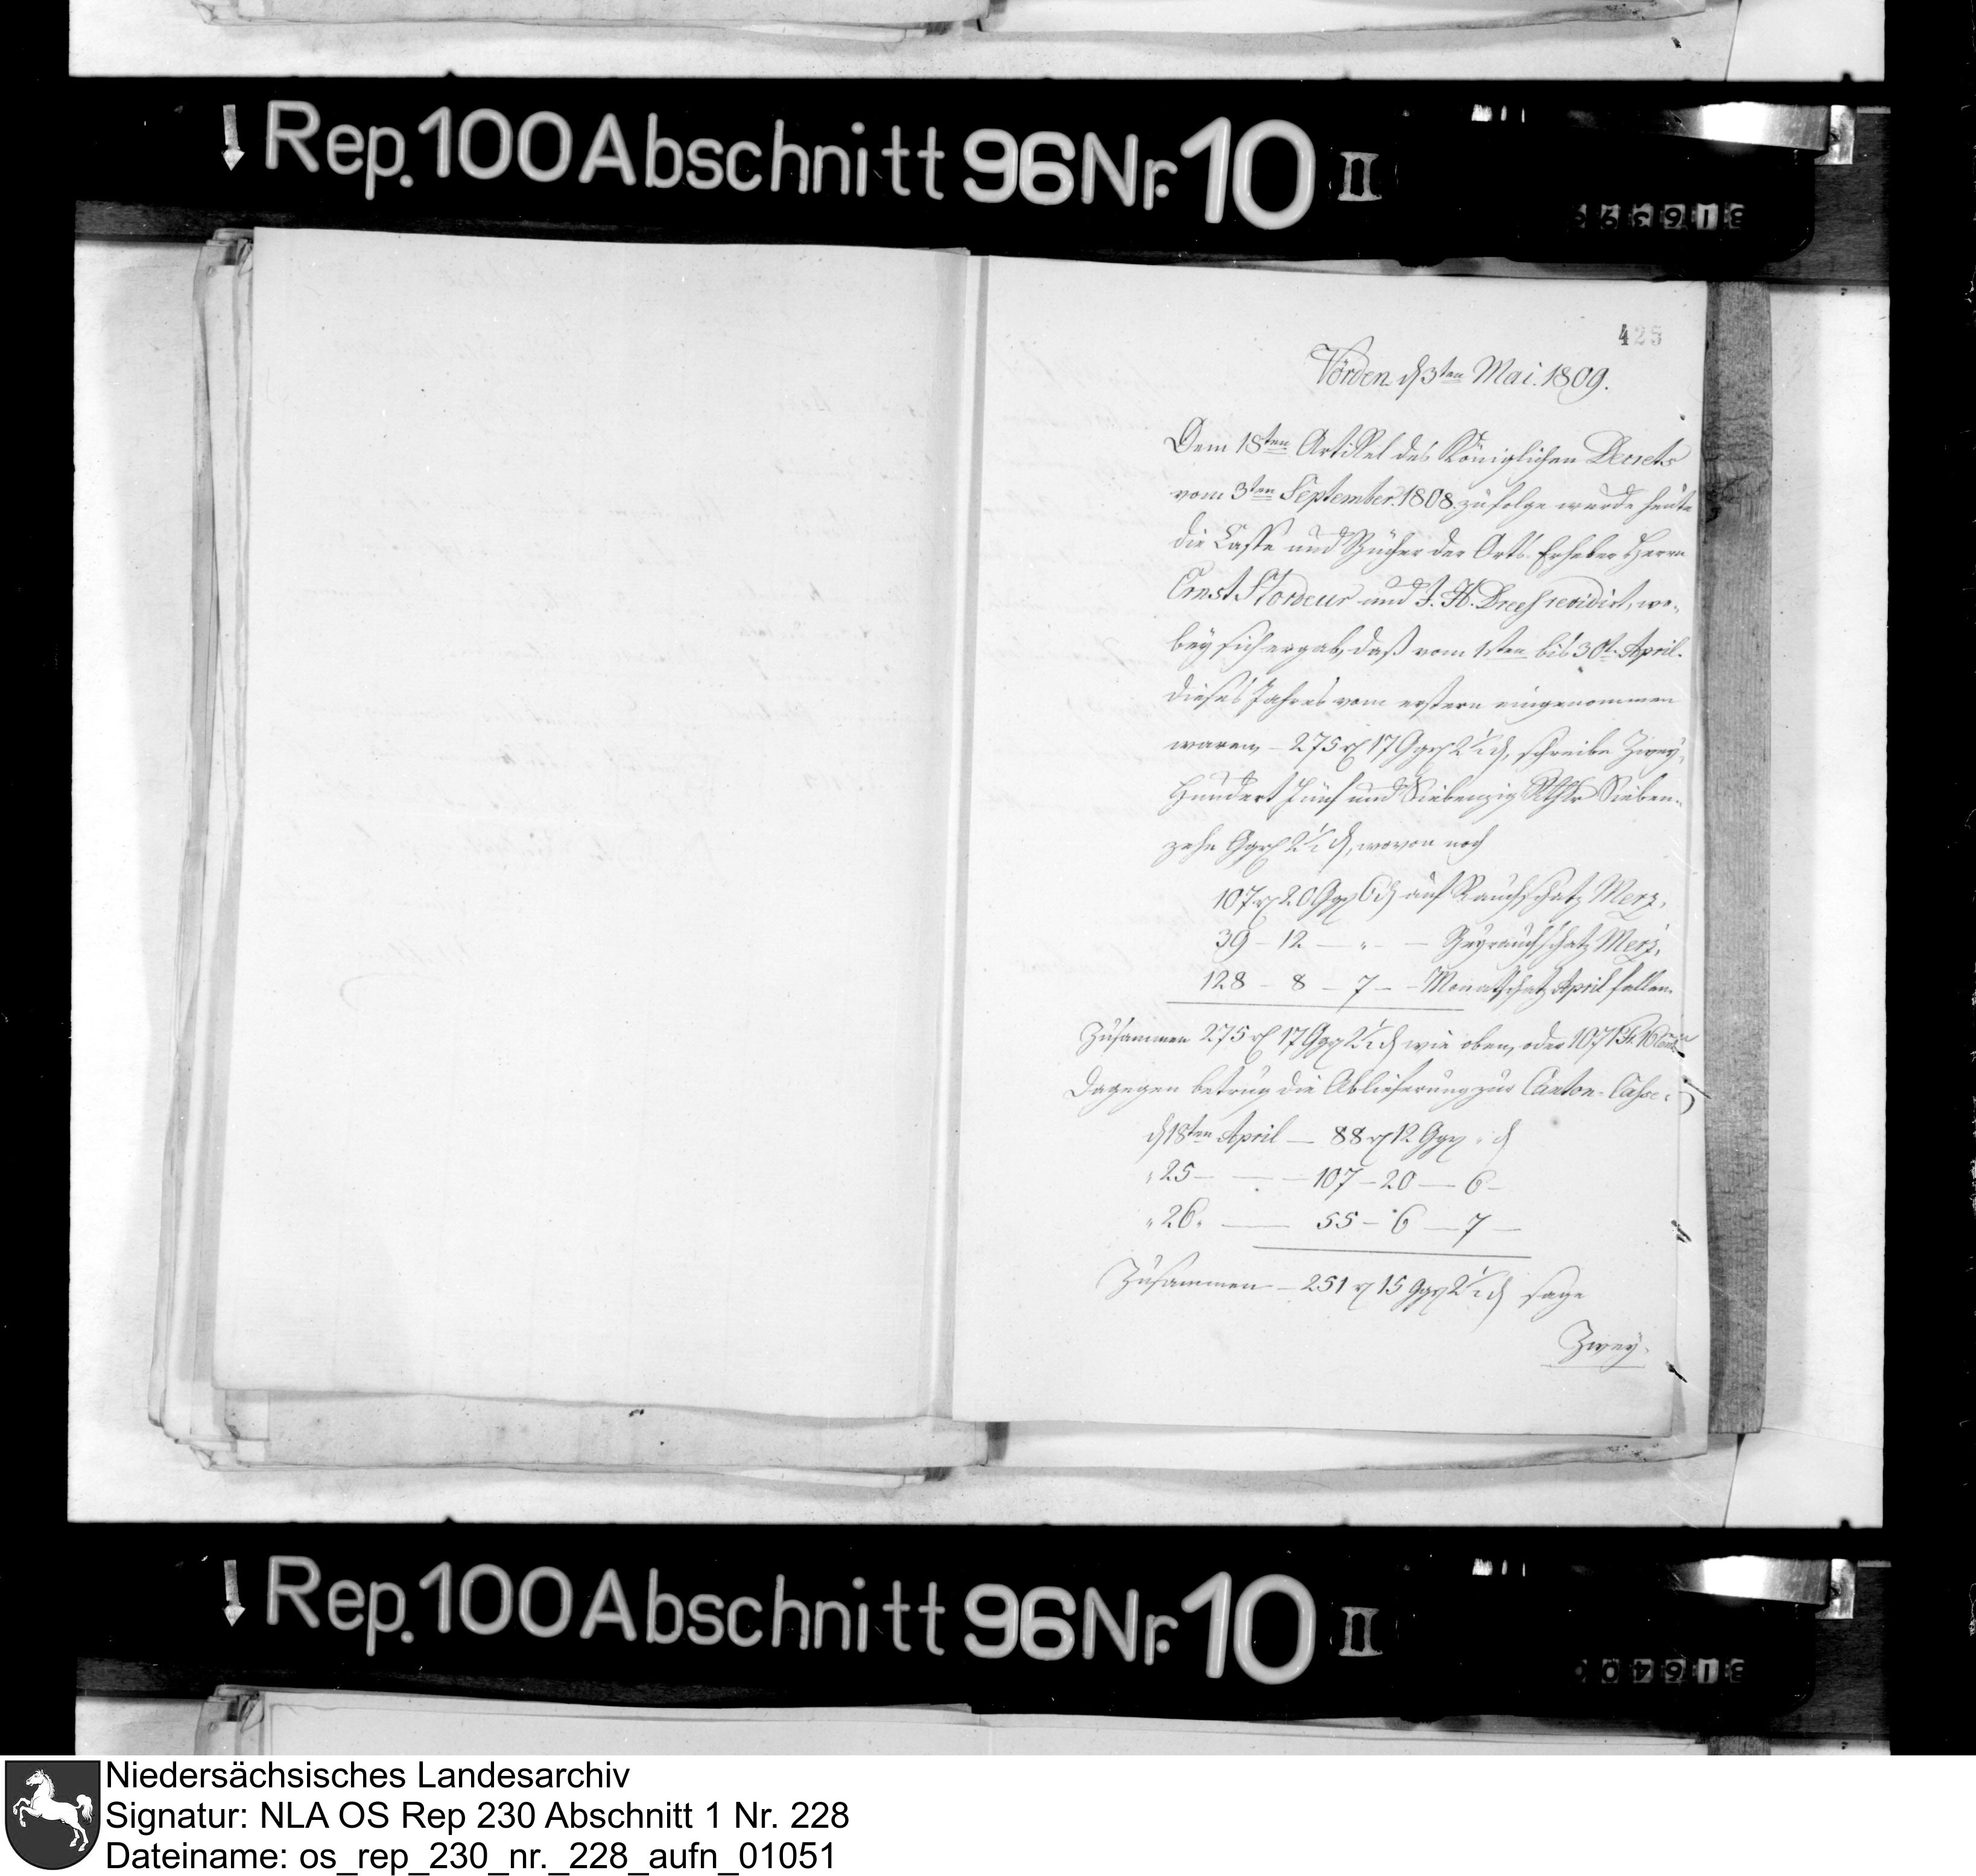 Rep. 100 Abschnitt 96 Nr. 10 II
425
Vörden d 3ten Mai. 1809.
Dem 18ten Artikel des Königlichen Decrets
vom 3ten September. 1808. zufolge wurde heute
die Casse und Bücher der Orts-Erheber Herrn
Ernst Flordeur und J. H. Drees revidirt, wo-
bey sich ergab, daß vom 1sten bis 30t. April
dieses Jahres vom erstern eingenommen
waren, – 275 rt 17 Ggr 2½ d, schreibe Zwey-
Hundert Fünf und Siebenzig Rthlr Sieben-
zehn Ggr 2½ d, wovon noch
107 rt 20 Ggr 6 d auf Rauchschatz Merz,
39 – 12 — „ – — Beyrauchschatz Merz,
128 – 8 – 7 – – Monatschatz April fallen.
Zusammen 275 rt 17 Ggr 2½ d wie oben, oder 107
Dagegen betrug die Ablieferung zur Canton-Casse:
d 18ten April — 88 rt 12 Ggr „ d
„ 25 – — – 107 – 20 — 6 –
„ 26. — 55 – 6 — 7 —
Zusammen – 251 rt 15 Ggr 2½ d sage
Zwey-
Rep. 100 Abschnitt 96 Nr. 10 II
Niedersächsisches Landesarchiv
Signatur: NLA OS Rep 230 Abschnitt 1 Nr. 228
Dateiname: os_rep_230_nr._228_aufn_01051